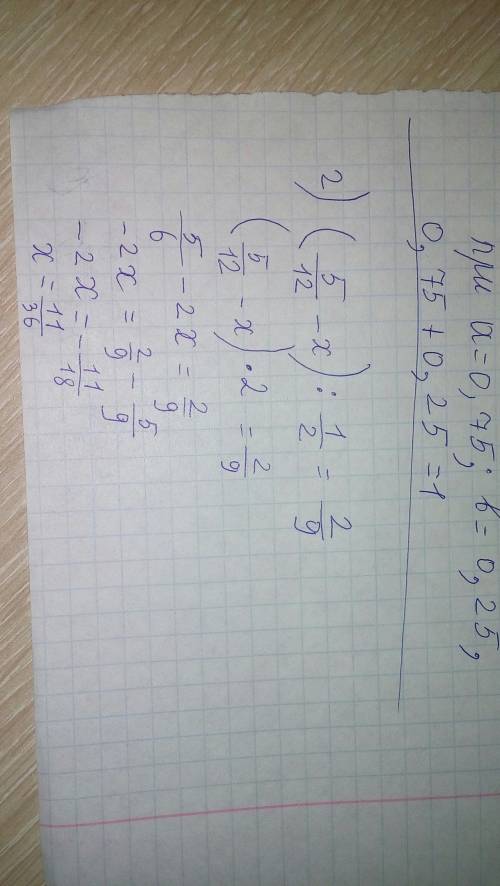 при a=0,75; b=0,25,
0,75+0,25=1
2) (5/12 - x) : 1/2 = 2/9
(5/12 - x) · 2 = 2/9
5/6 - 2x = 2/9
-2x = 2/9 - 5/9
-2x = -11/18
x = 11/36